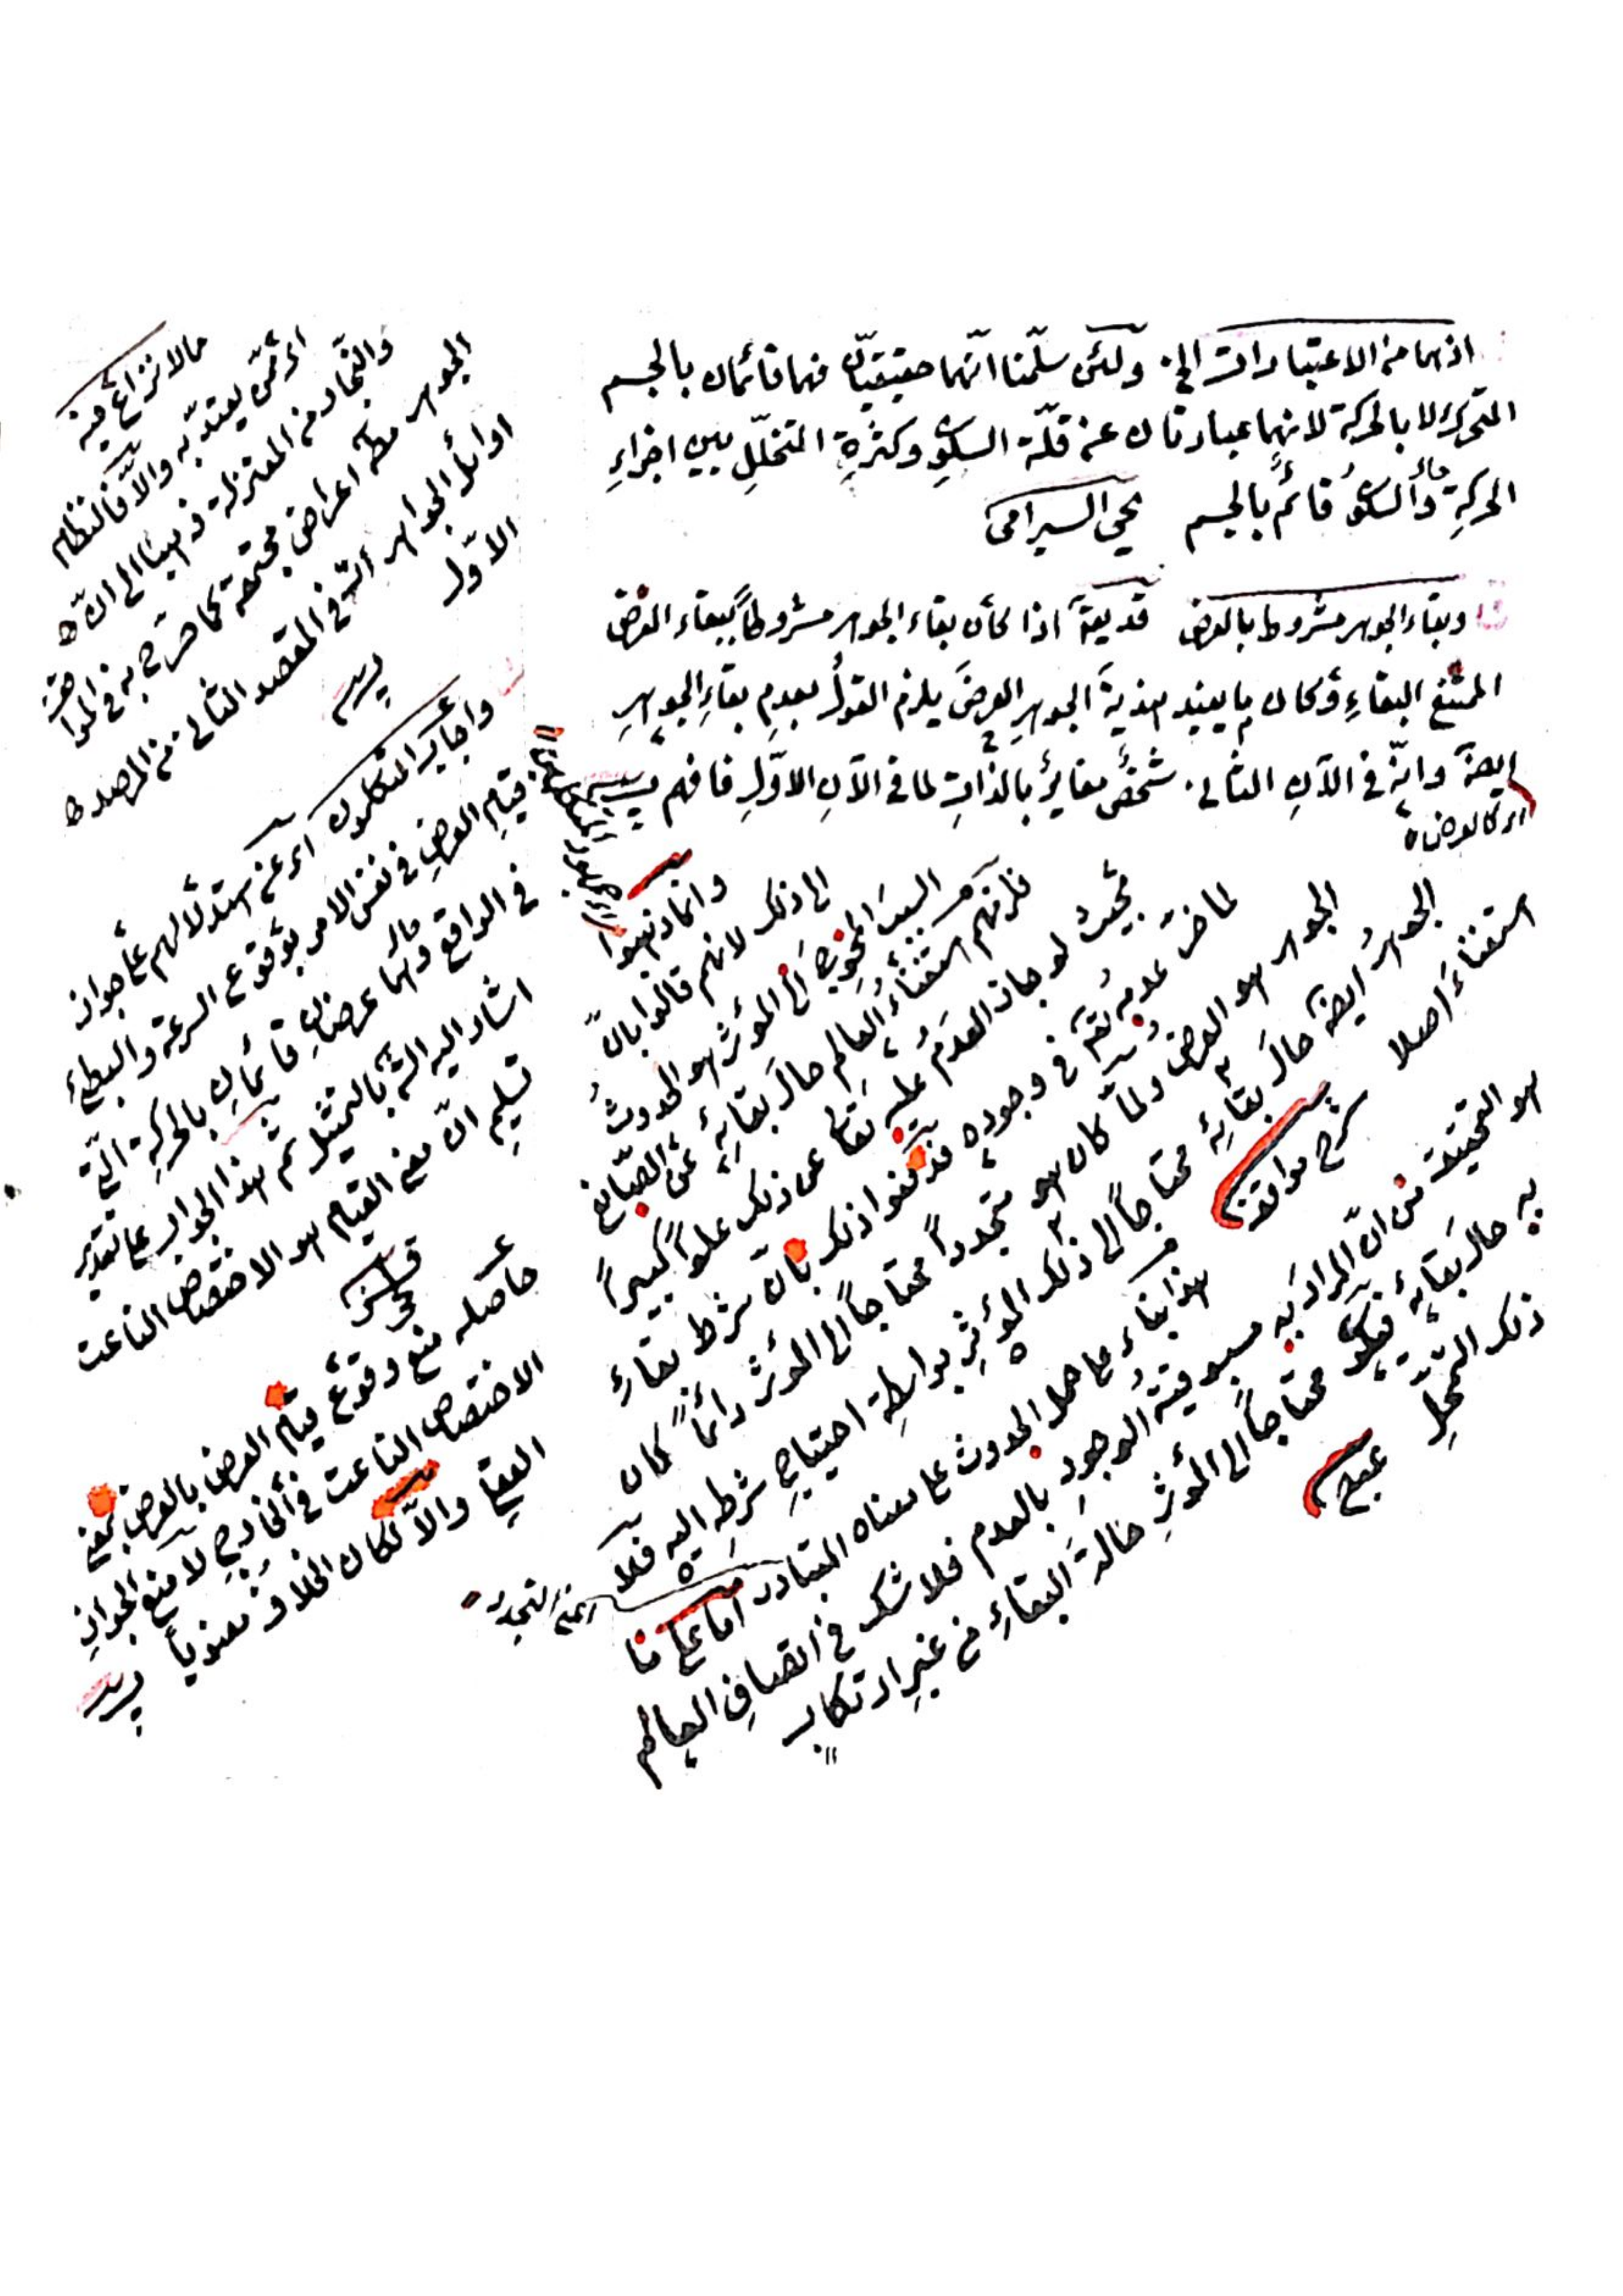 اذ هما من الاعتبارات الخ ولئن سلّمنا انّهما حقيقيّان فهما قائمان بالجسم
المتحرك لا بالحركة لانهما عبارتان عن قلّة السكون وكثرةِ المتخلّلِ بين اجزاءِ
الحركةِ والسكونُ قائم بالجسم يحيى السيرامى
وبقاء الجوهر مشروط بالعرض اذا كان بقاء الجوهر مشروطاً ببقاء العرض
الممتنع البقاءِ وكان ما يفيد هذية الجوهرِ العرضَ يلزم القولُ بعدمِ بقاءِ الجوهرِ
ايضاً وانّه فى الآنِ الثانى شخصٌ مغايرٌ بالذاتِ لما فى الآنِ الاوّلِ فافهم
اى كالعرض
وانما ذهبوا
الى ذلك لانهم قالوا بانّ
السببَ المحوِجَ الى المؤثر هو الحدوثُ
فلزمهم استغناءُ العالمِ حالَ بقائهِ عن الصّانع
بحيث لو جاز العدمُ عليه تعالى عن ذلك علوّاً كبيراً
لما ضرّ عدمه فى وجودِه فدفعوا ذلك بانّ شرط بقاءِ
الجوهر هو العرض ولمّا كان هو متجدداً محتاجاً الى المؤثر دائماً كان
الجوهرُ ايضاً حالَ بقائه محتاجاً الى ذلك المؤثرِ بواسطةِ احتياجِ شرطِه اليه فلا
استغناءَ اصلا شرح مواقف
هذا بناء على حمل الحدوث على معناه المتبادر اما على ما
هو التحقيق من انّ المرادَ به مسبوقيّةُ الوجودِ بالعدم فلا شك فى اتصافِ العالم
به حالَ بقائِه فيكون محتاجاً الى المؤثرِ حالةَ البقاءِ من غيرِ ارتكابِ
ذلك التمحّلِ
اعنى التجدد
مما لا نزاع فيه
اى ممّن يعتدّ به والاّ فالنظام
والنجّار من المعتزلة ذهبا الى انّ
الجوهر مطلقا اعراض مجتمعة كما صرّح به فى المواقف
اوائل الجواهر فى المقصد الثانى من المرصد
الاوّل
واجاب المتكلمون اى عن استدلالهم على جواز
قيامِ العرضِ فى نفس الامر بوقوع السرعة والبطئ
فى الواقع وهما عرضانِ قائمانِ بالحركةِ التى
اشار اليه بالتمثيل ثم هذا الجواب على تقدير
تسليمِ انّ معنى القيام هو الاختصاص الناعت
حاصله منع وقوع قيام العرض بالعرض بمعنى
الاختصاص الناعت فى الخارجِ لا منع الجوازِ
العقلى والاّ لكان الخلاف معنوياً